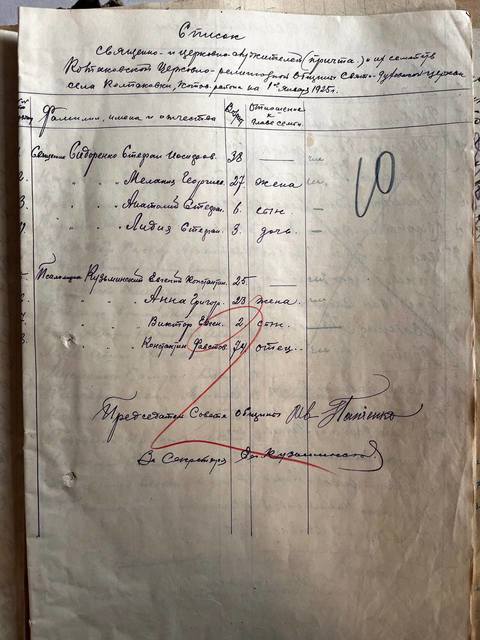 Список
священно- и церковно-служителей (причта) и их семейств
Ковтаковской Церковно-религиозной общины Свято-Духовской церкви
села на 1е Января 1925 г.
Фамилии, имена и отчества Возр. Отношение к главе семьи
Священник Сидоренко Стефан 38 —
" " Мелания Георгиев. 27 жена
" " Анатолий Стефан. 6. сын —
" " Лидия Стефан. 3. дочь —
Псаломщик Кузьминский Евгений Константин. 25 —
" Анна Григор. 23 жена.
" Виктор Евген. 2 сын.
" Константин 74 отец.
Председатель Совета общины
За Секретаря
10